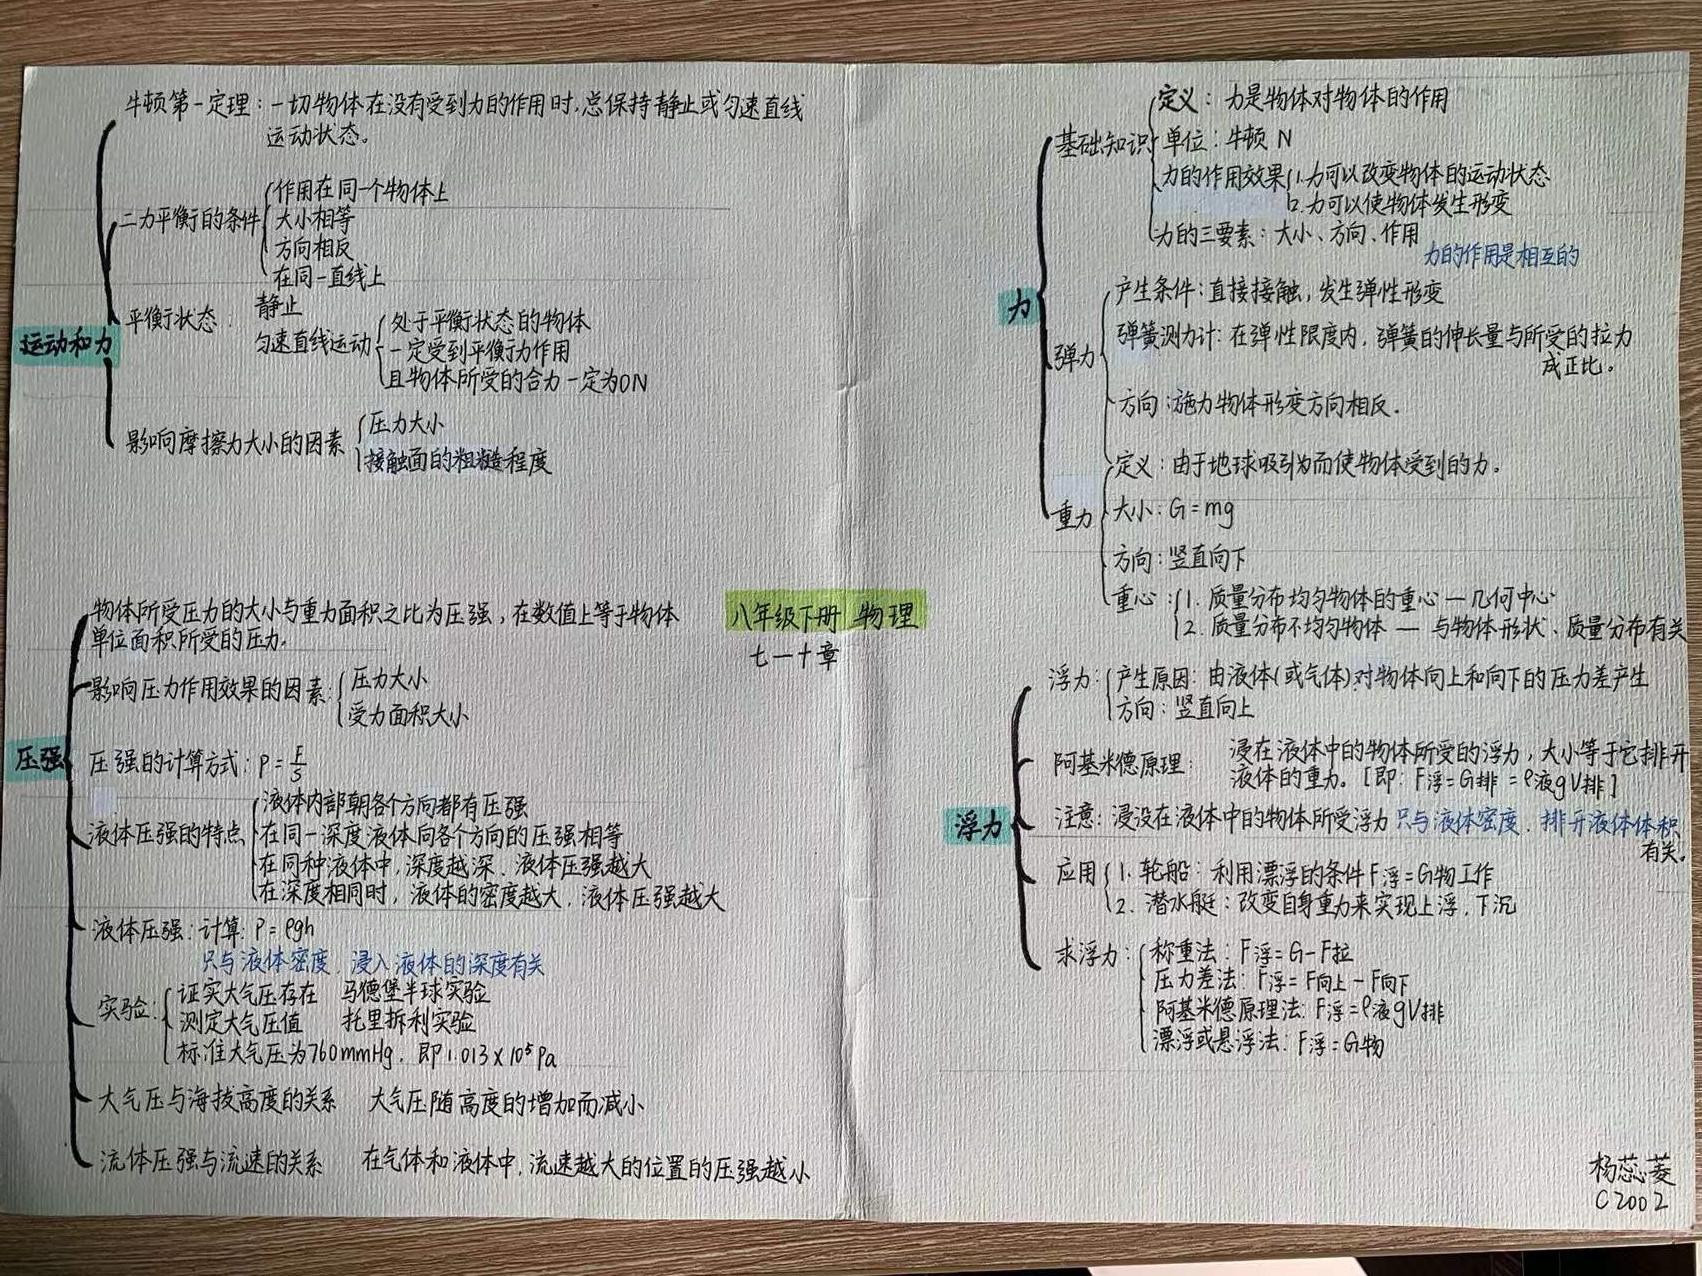 八年级下册 物理
七一十章
运动和力
牛顿第一定理：一切物体在没有受到力的作用时,总保持静止或匀速直线
运动状态。
二力平衡的条件
作用在同一个物体上
大小相等
方向相反
在同一直线上
平衡状态：
静止
匀速直线运动
处于平衡状态的物体
一定受到平衡力作用
且物体所受的合力一定为0N
影响摩擦力大小的因素
压力大小
接触面的粗糙程度
压强
物体所受压力的大小与重力面积之比为压强，在数值上等于物体
单位面积所受的压力.
影响压力作用效果的因素：
压力大小
受力面积大小
压强的计算方式：P=F/S
液体压强的特点
液体内部朝各个方向都有压强
在同一深度液体向各个方向的压强相等
在同种液体中，深度越深、液体压强越大
在深度相同时，液体的密度越大，液体压强越大
液体压强：计算：P=ρgh
只与液体密度、浸入液体的深度有关
实验：
证实大气压存在 马德堡半球实验
测定大气压值 托里拆利实验
标准大气压为760mmHg. 即1.013×10⁵Pa
大气压与海拔高度的关系 大气压随高度的增加而减小
流体压强与流速的关系 在气体和液体中，流速越大的位置的压强越小
力
基础知识
定义：力是物体对物体的作用
单位：牛顿 N
力的作用效果
1.力可以改变物体的运动状态
2.力可以使物体发生形变
力的三要素：大小、方向、作用
力的作用是相互的
弹力
产生条件：直接接触，发生弹性形变
弹簧测力计：在弹性限度内，弹簧的伸长量与所受的拉力
成正比。
方向：施力物体形变方向相反.
重力
定义：由于地球吸引力而使物体受到的力。
大小：G=mg
方向：竖直向下
重心：
1. 质量分布均匀物体的重心—几何中心
2. 质量分布不均匀物体 — 与物体形状、质量分布有关
浮力
浮力：
产生原因：由液体(或气体)对物体向上和向下的压力差产生
方向：竖直向上
阿基米德原理：
浸在液体中的物体所受的浮力，大小等于它排开
液体的重力。[即：F浮=G排=ρ液gV排]
注意：浸没在液体中的物体所受浮力只与液体密度、排开液体体积
有关。
应用
1. 轮船：利用漂浮的条件F浮=G物工作
2. 潜水艇：改变自身重力来实现上浮、下沉
求浮力：
称重法：F浮=G-F拉
压力差法：F浮=F向上-F向下
阿基米德原理法：F浮=ρ液gV排
漂浮或悬浮法：F浮=G物
杨蕊菱
C2002